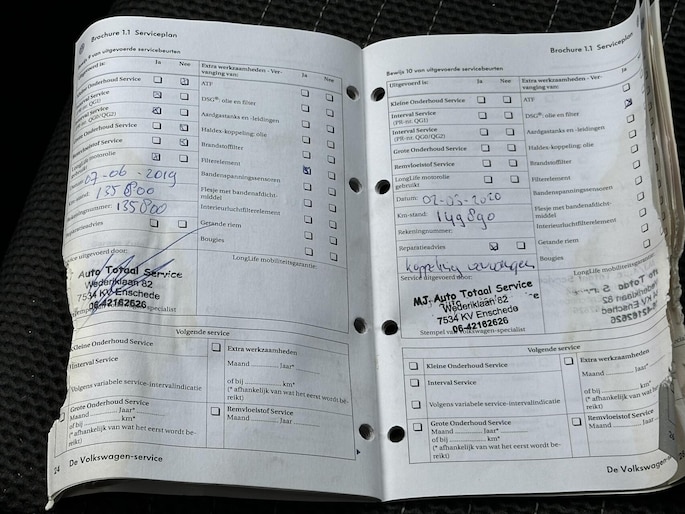 Brochure 1.1 Serviceplan
9 van uitgevoerde servicebeurten
Ja Nee
Extra werkzaamheden - Ver-
vanging van:
Ja Nee
Onderhoud Service
ATF
Service
QG1)
DSG®: olie en filter
Service
QG0/QG2)
Aardgastanks en -leidingen
Onderhoud Service
Haldex-koppeling; olie
Service
Brandstoffilter
motorolie
Filterelement
07-06-2019
Bandenspanningssensoren
135800
Flesje met bandenafdicht-
middel
135800
Interieurluchtfilterelement
Getande riem
Bougies
uitgevoerd door:
LongLife mobiliteitsgarantie:
Auto Totaal Service
Wederiklaan 82
7534 KV Enschede
06-42162626
Volgende service
Kleine Onderhoud Service
Interval Service
Volgens variabele service-intervalindicatie
Extra werkzaamheden
Maand Jaar*
of bij km*
(* afhankelijk van wat het eerst wordt be-
reikt)
Grote Onderhoud Service
Maand Jaar*
of bij km*
(* afhankelijk van wat het eerst wordt be-
reikt)
Remvloeistof Service
Maand Jaar
24 De Volkswagen-service
Brochure 1.1 Serviceplan
Bewijs 10 van uitgevoerde servicebeurten
Uitgevoerd is:
Ja Nee
Extra werkzaamheden - Ver-
vanging van:
Ja
Kleine Onderhoud Service
ATF
Interval Service
(PR-nr. QG1)
DSG®: olie en filter
Interval Service
(PR-nr. QG0/QG2)
Aardgastanks en -leidingen
Grote Onderhoud Service
Haldex-koppeling; olie
Remvloeistof Service
Brandstoffilter
LongLife motorolie
gebruikt
Filterelement
Datum:
Bandenspanningssensoren
Km-stand: 149890
Flesje met bandenafdicht-
middel
Rekeningnummer:
Interieurluchtfilterelement
Reparatieadvies
Getande riem
Bougies
koppeling vervangen
Service uitgevoerd door:
LongLife mobiliteitsgarantie
MJ Auto Totaal Service
Wederiklaan 82
7534 KV Enschede
06-42162626
Stempel van Volkswagen-specialist
Volgende service
Kleine Onderhoud Service
Interval Service
Volgens variabele service-intervalindicatie
Extra werkzaamheden
Maand Jaar*
of bij km*
(* afhankelijk van wat het eerst wordt be-
reikt)
Grote Onderhoud Service
Maand Jaar*
of bij km*
(* afhankelijk van wat het eerst wordt be-
reikt)
Remvloeistof Service
Maand Jaar
De Volkswagen-